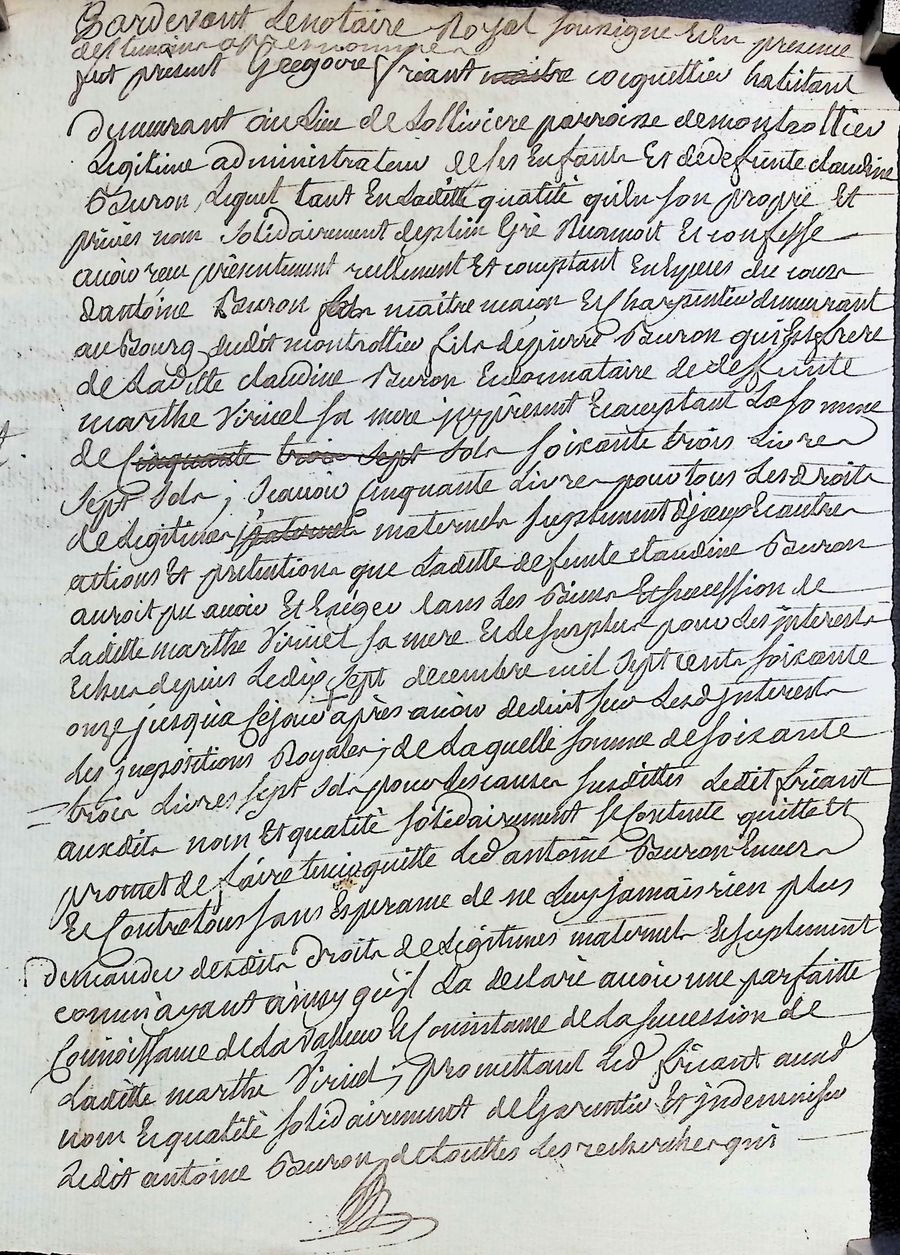 Pardevant Le notaire Royal soussigne et en presence
des temoins apres nommes
fut present Gregoire friant maitre cocquettier habitant
demeurant au Lieu de Lolliviere parroisse de montrottier
Legitime administrateur de ses Enfants Et de defunte claudine
Buron, Lequel tant En Laditte qualité qu'En son propre Et
privés nom solidairement de plein Gré Reconnoit Et confesse
avoir reçu présentement reellement Et comptant En Especes du cours
d'antoine Buron fils maître maçon Et Charpentier demeurant
au Bourg dudit montrottier fils de pierre Buron qui Est frere
de Laditte claudine Buron Et donnataire de deffunte
marthe Viricel sa mere jcy présent Et acceptant La somme
de cinquante trois sept sols soixante trois Livres
sept sols ; scavoir cinquante Livres pour tous Les droits
de Legitimes paternels maternels supplement d'jceux Et autres
actions Et prétentions que Laditte defunte claudine Buron
auroit pu avoir Et Exiger dans Les Biens Et succession de
Laditte marthe Viricel sa mere Et de surplus pour Les jnterests
Echus depuis Le dix sept decembre mil sept cents soixante
onze jusqua Ce jour après avoir deduit sur Lesd jnterests
Les jmpositions Royales ; de Laquelle somme de soixante
trois Livres sept sols pour Les causes susdittes Ledit friant
auxdits nom Et qualité solidairement se Contente quitte Et
promet de faire tenir quitte Led antoine Buron Envers
Et Contre tous sans Esperance de ne Luy jamais rien plus
demander desdits droits de Legitimes maternels Et suplement
comme ayant ainsy qu'jl La declaré avoir une parfaitte
Connoissance de La valleur Et Consistance de La succession de
Laditte marthe Viricel ; promettant Led friant auxd
nom Et qualité solidairement de Garantir Et jndemniser
Ledit antoine Buron de touttes Les recherches qui